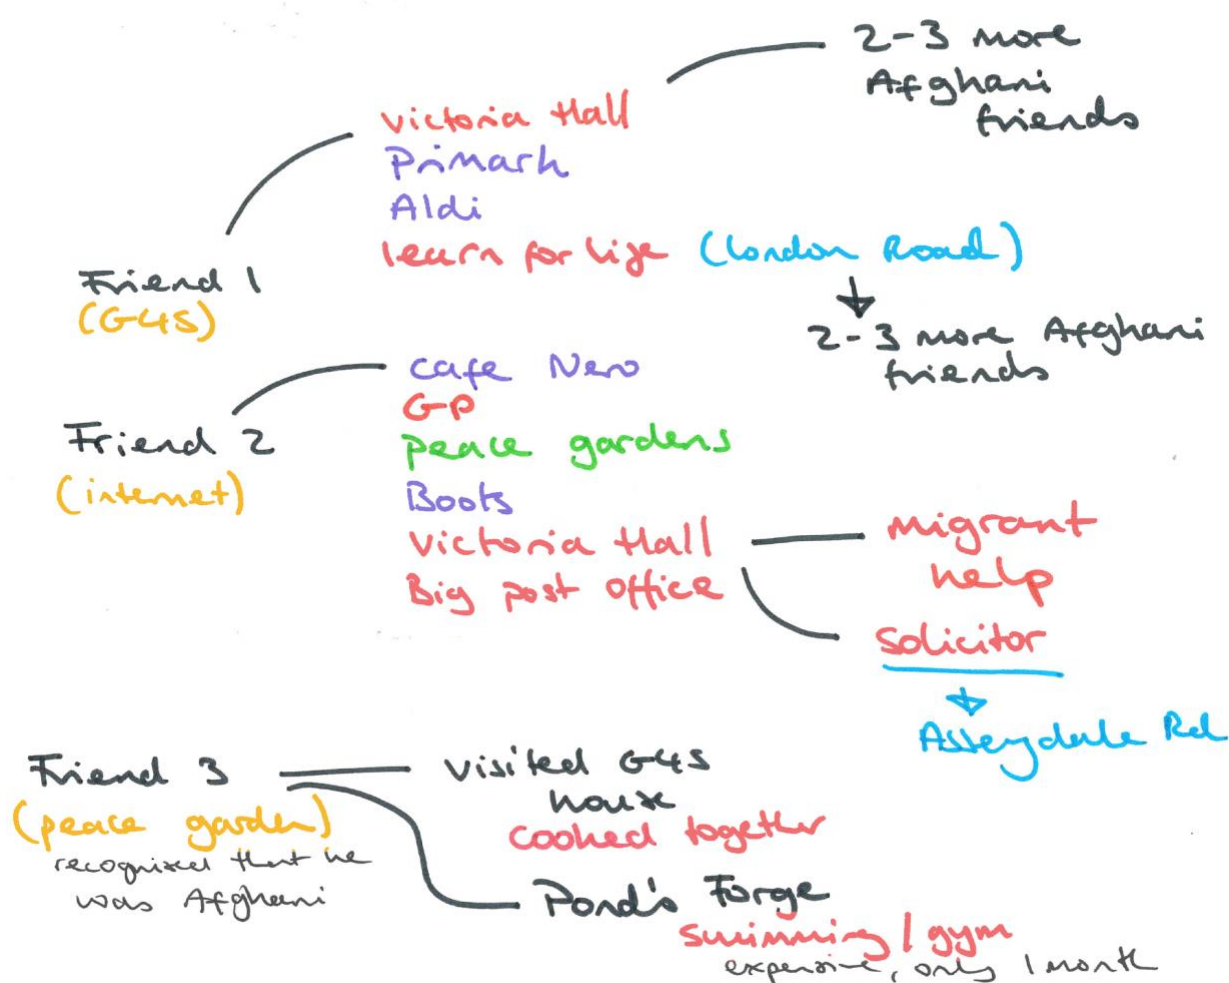 2-3 more
Afghani
friends
Victoria Hall
Primark
Aldi
learn for life (London Road)
2-3 more Afghani
friends
Friend 1
(G4S)
cafe Nero
GP
peace gardens
Boots
Victoria Hall
Big post office
Friend 2
(internet)
Migrant
help
solicitor
Rd
Friend 3
(peace garden)
recognised that he
was Afghani
visited G4S
house
cooked together
Pond's Forge
swimming / gym
expensive, only 1 month